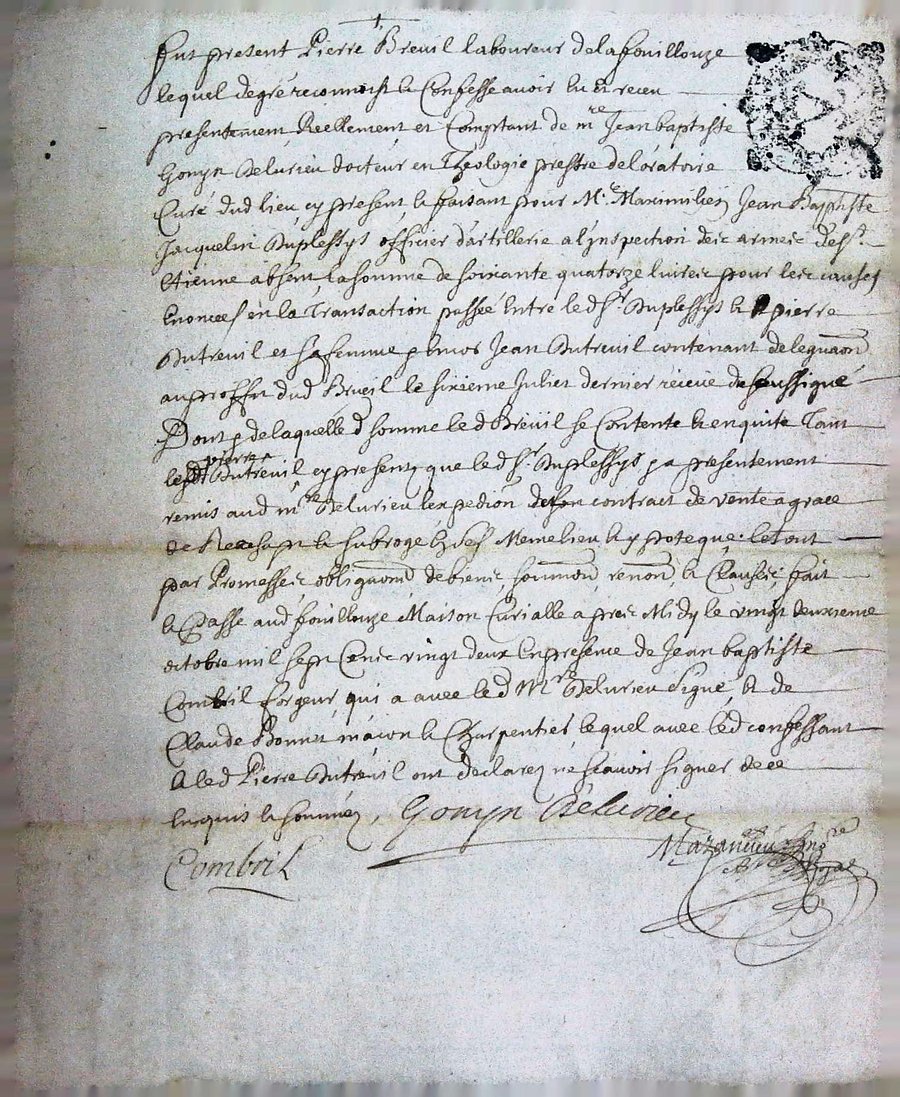 fut present Pierre Breuil laboureur de la fouillouze
lequel de gré reconnoist & Confesse auoir eu et receu
presentement Reellement et Comptant de mre Jean baptiste
Gonyn Delurieu docteur en Theologie prestre de loratoire
Curé dud lieu cy present & faisant pour Mr Maximilien Jean Baptiste
Jacquelin Duplessys officier dartillerie a linspection des armes de St
Etienne absent, la somme de soixante quatorze liures pour les causes
enoncees en la Transaction passée entre led Sr Duplessys & pierre
Dutreuil et sa femme Jean Dutreuil contenant delegaon
au proffit dud Brueil le sixieme Juliet dernier receue
Dont & de laquelle d somme led Breüil se Contente & en quite Tant
led pierre Dutreuil cy present que led Sr Duplessys ya presentement
remis aud mre Delurieu lexpedion de son contract de vente a grace
de Rachapt & subrogé en ses Meme lieu & ypoteque. le tout
par Promesses, obligaons de biens, soumons, renons & Clauses fait
& Passé aud fouillouze Maison Curialle apres Midy le vingt deuxieme
octobre mil sept Cens vingt deux en presence de Jean baptiste
Combril forgeur, qui a auec led Mre Delurieu Signé, & de
Claude Bonnet maçon & Charpentier, lequel auec led confessant
& led Pierre Dutreuil ont declarez ne scauoir signer de ce
enquis & sommez, Gonyn Delurieu
Combril